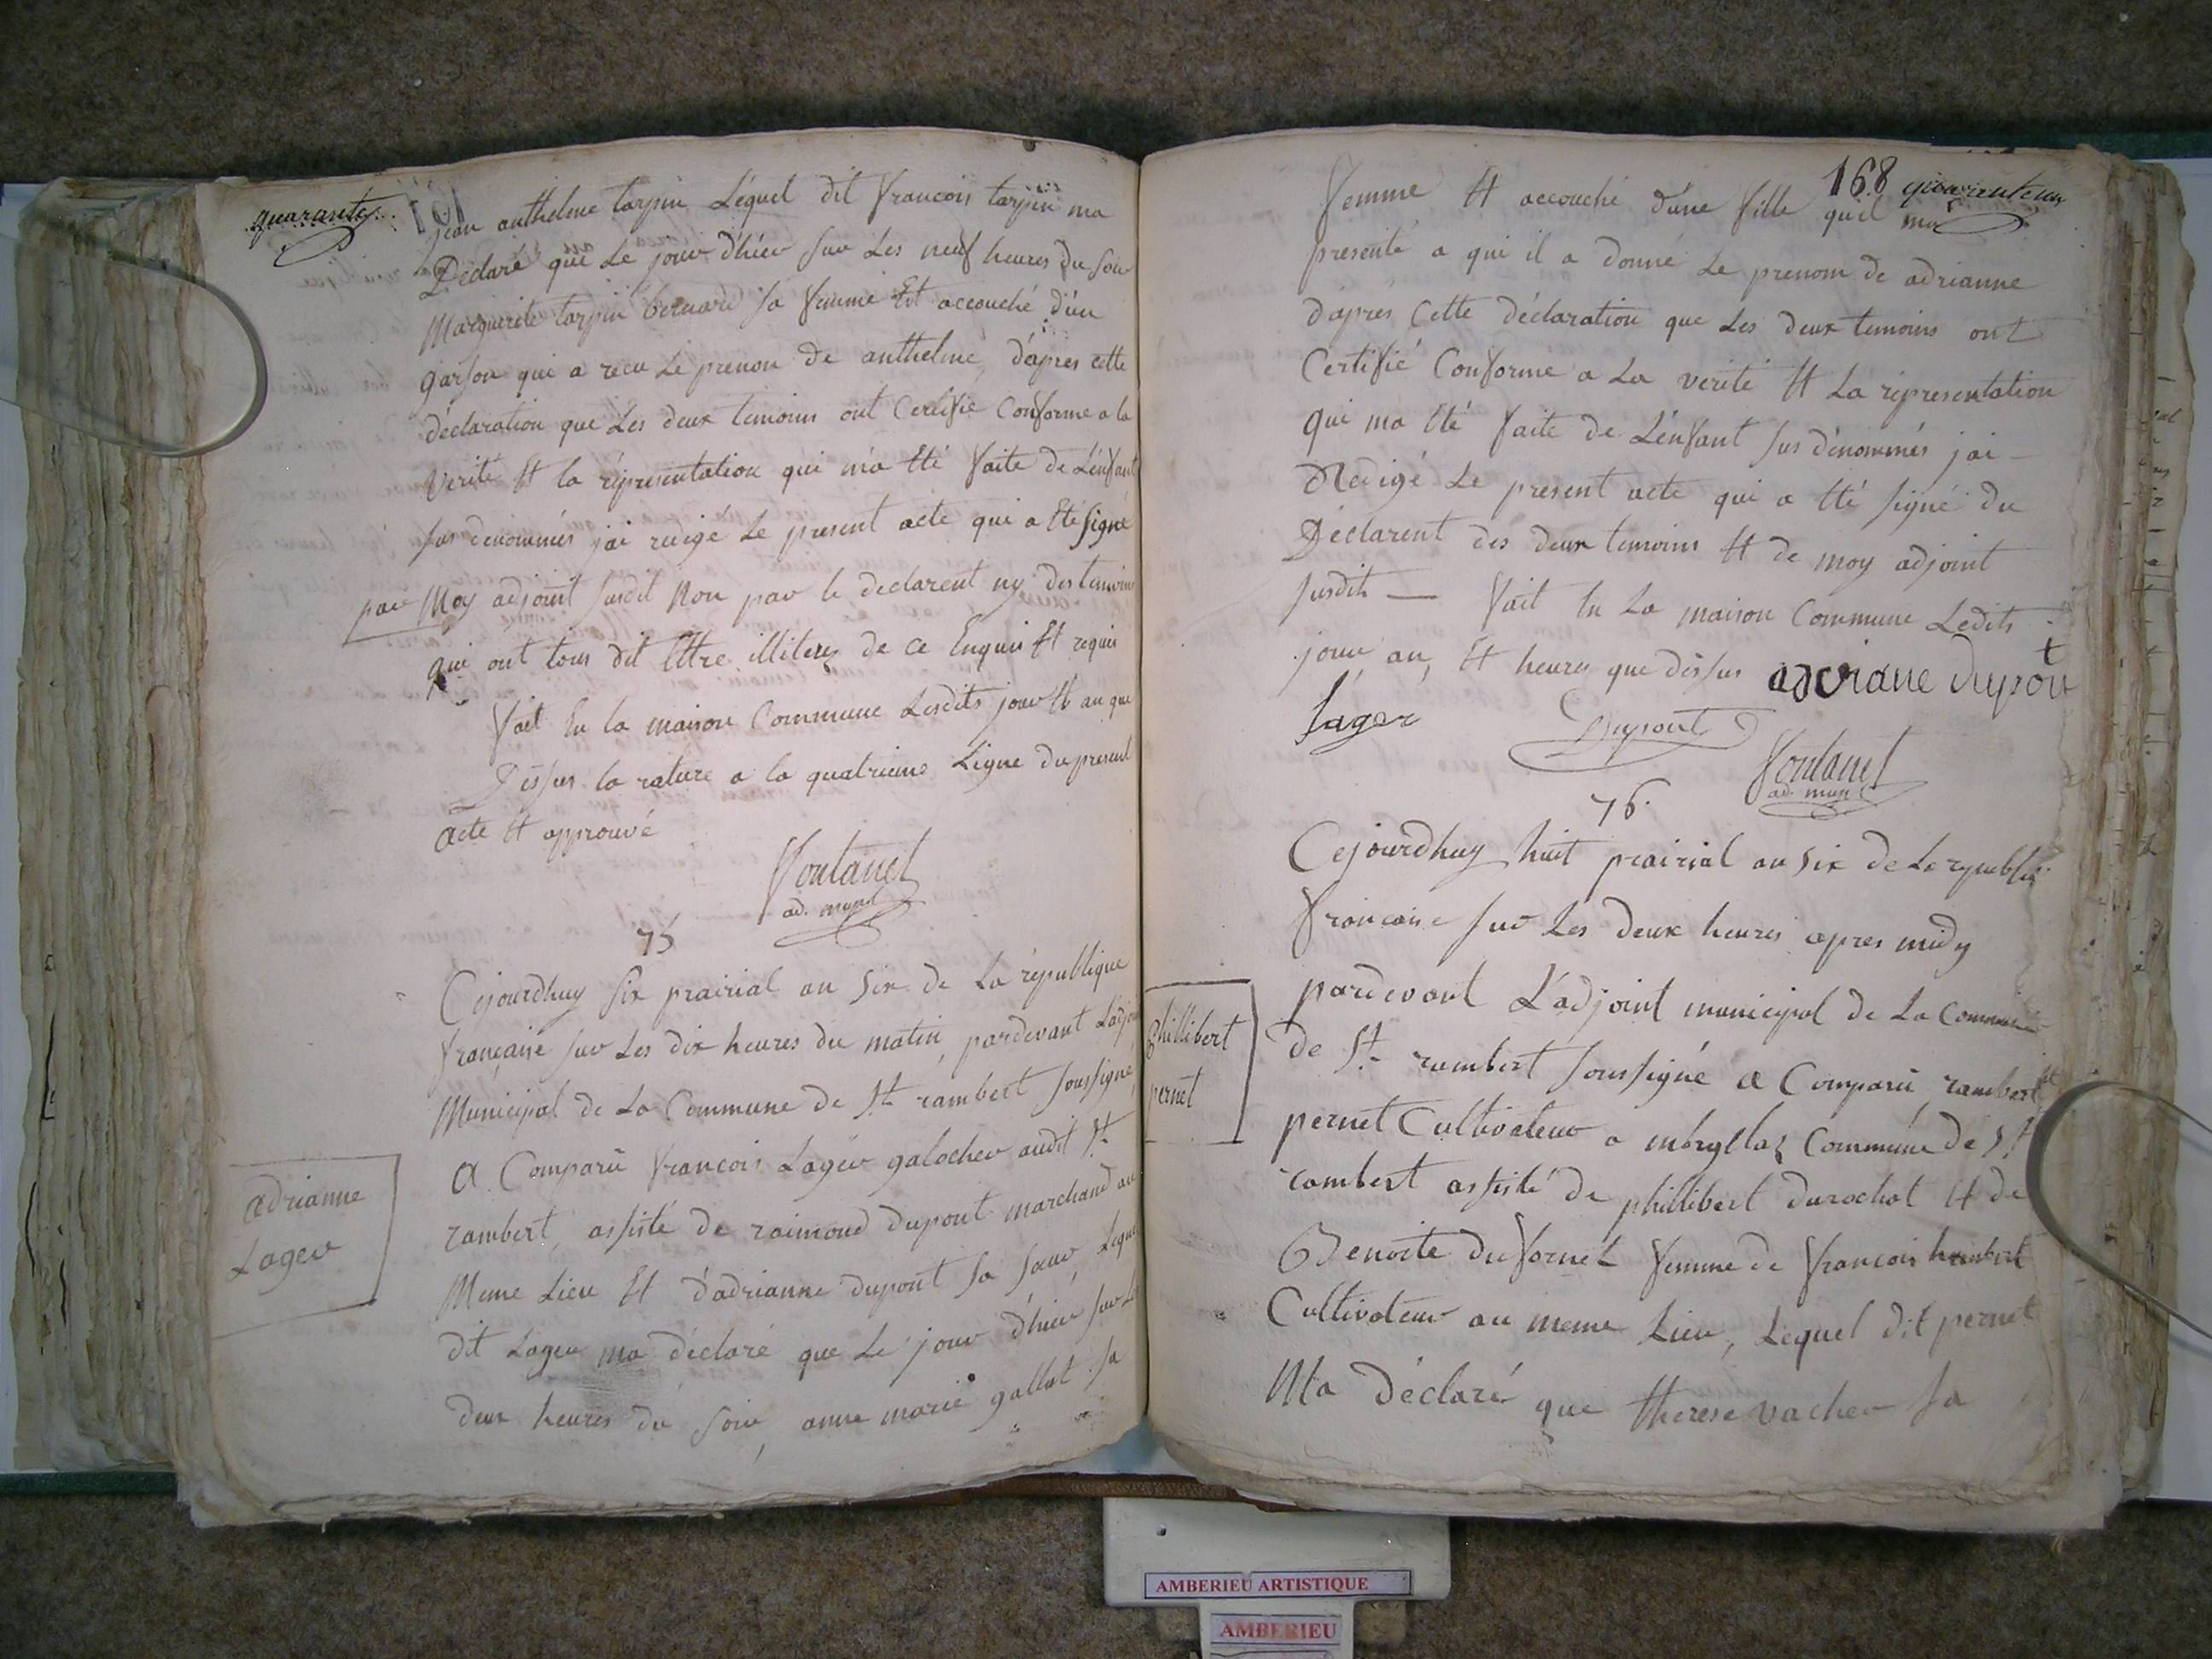 quarante
jean anthelme tarpin Léquel dit francois tarpin ma
Déclaré que Le jour d'hier sur Les neuf heures du soir
Marguerite tarpin bernard sa femme Est accouché d'un
garson qui a recu Le prenom de anthelme, d'apres cette
déclaration que Les deux temoins ont Certifié Conforme a la
verité Et la réprésentation qui m'a Eté faite de L'enfant
sus denommés j'ai redigé Le present acte qui a Eté signé
par Moy adjoint susdit Non par le declarent ny des temoins
qui ont tous dit Etre illiterez de ce Enquis Et requis
fait En la maison Commune Lesdits jour Et an que
Dessus la rature a la quatrieme Ligne du present
acte Et approuvé
fontanel
ad. mupal
75
Cejourdhuy six prairial an six de La république
française sur Les dix heures du matin, pardevant L'adjoint
Municipal de La Commune de St rambert soussigné,
A Comparû francois Lager galocher audit St
adrianne
Lager
rambert, assisté de raimond dupont marchand au
Meme Lieu Et d'adrianne dupont sa soeur, Lequel
dit Lager ma déclaré que Le jour d'hier sur Les
deux heures du soir, anne marie gallat sa
168 quarante un
femme Et accouché d'une fille qu'il ma
présenté a qui il a donné Le prenom de adrianne
d'aprés Cette déclaration que Les deux temoins ont
Certifié Conforme a La verité Et La réprésentation
qui ma Eté faite de L'enfant sus dénommés j'ai —
Redigé Le present acte qui a Eté signé du
Déclarent des deux temoins Et de moy adjoint
susdit — fait En La maison Commune Ledits
jour an, Et heures que dessus adriane dupon
t
lager Dupont
fontanel
ad. mupal
76.
Cejourdhuy huit prairial an six de La republi
francaise sur Les deux heures apres midy
pardevant L'adjoint municipal de La Commune
phillibert
pernet
de St rambert soussigné a Comparû rambert
pernet Cultivateur a Commune de St
rambert assisté de phillibert durochat Et de
Benoite dufornel femme de francois humbert
Cultivateur au meme Lieu, Lequel dit pernet
Ma Déclaré que therese vacher sa
AMBERIEU ARTISTIQUE
AMBERIEU